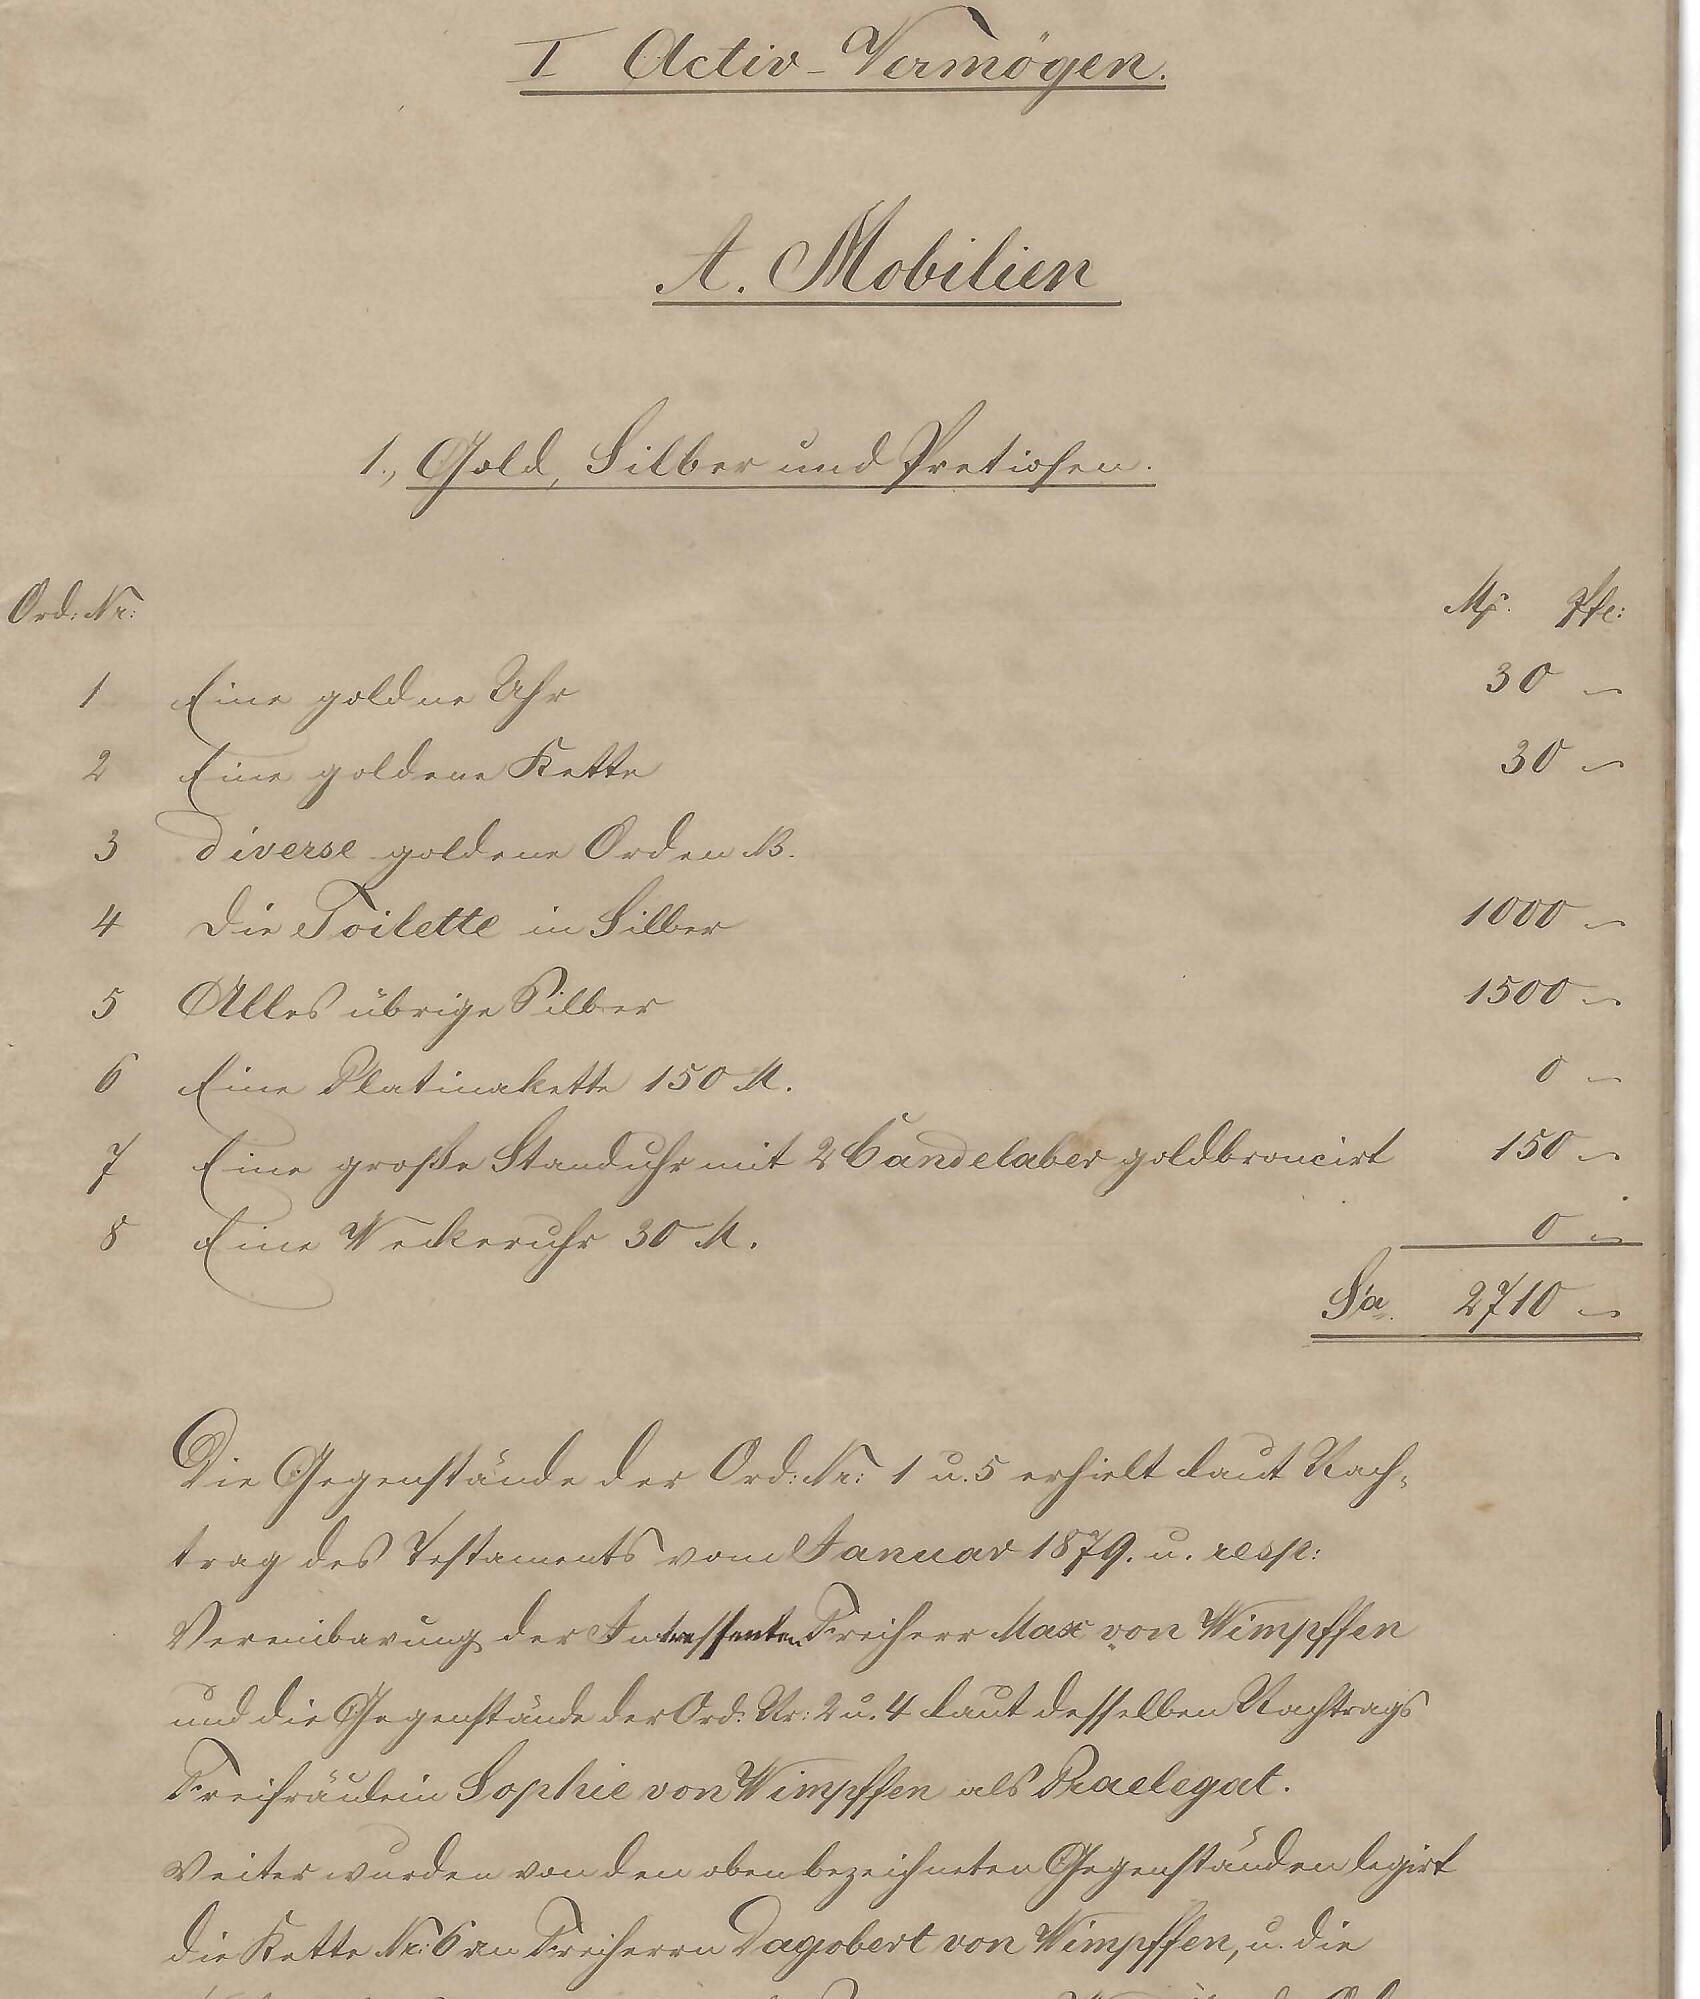 I Activ-Vermögen.
A. Mobilien
1., Gold, Silber und Pretiosen.
Ord: Nr: Mk. Pfe:
1 Eine goldne Uhr 30 –
2 Eine goldene Kette 30 –
3 diverse goldene Orden
4 die Toilette in Silber 1000 –
5 Alles übrige Silber 1500 –
6 Eine Platinakette 150 M. 0 –
7 Eine große Standuhr mit 2 Candelaber goldbroncirt 150 –
8 Eine Weckeruhr 30 M. 0 –
Sa. 2710 –
Die Gegenstände der Ord: Nr: 1 u. 5 erhielt laut Nach-
trag des Testaments vom Januar 1879. u. resp:
Vereinbarung der Intressenten Freiherr Max von Wimpffen
und die Gegenstände der Ord: Nr: 2 u. 4 laut desselben Nachtrags
Freifräulein Sophie von Wimpffen als Praelegat.
Weiter wurden von den oben bezeichneten Gegenständen legirt
die Kette Nr: 6 an Freiherrn Dagobert von Wimpffen, u. die